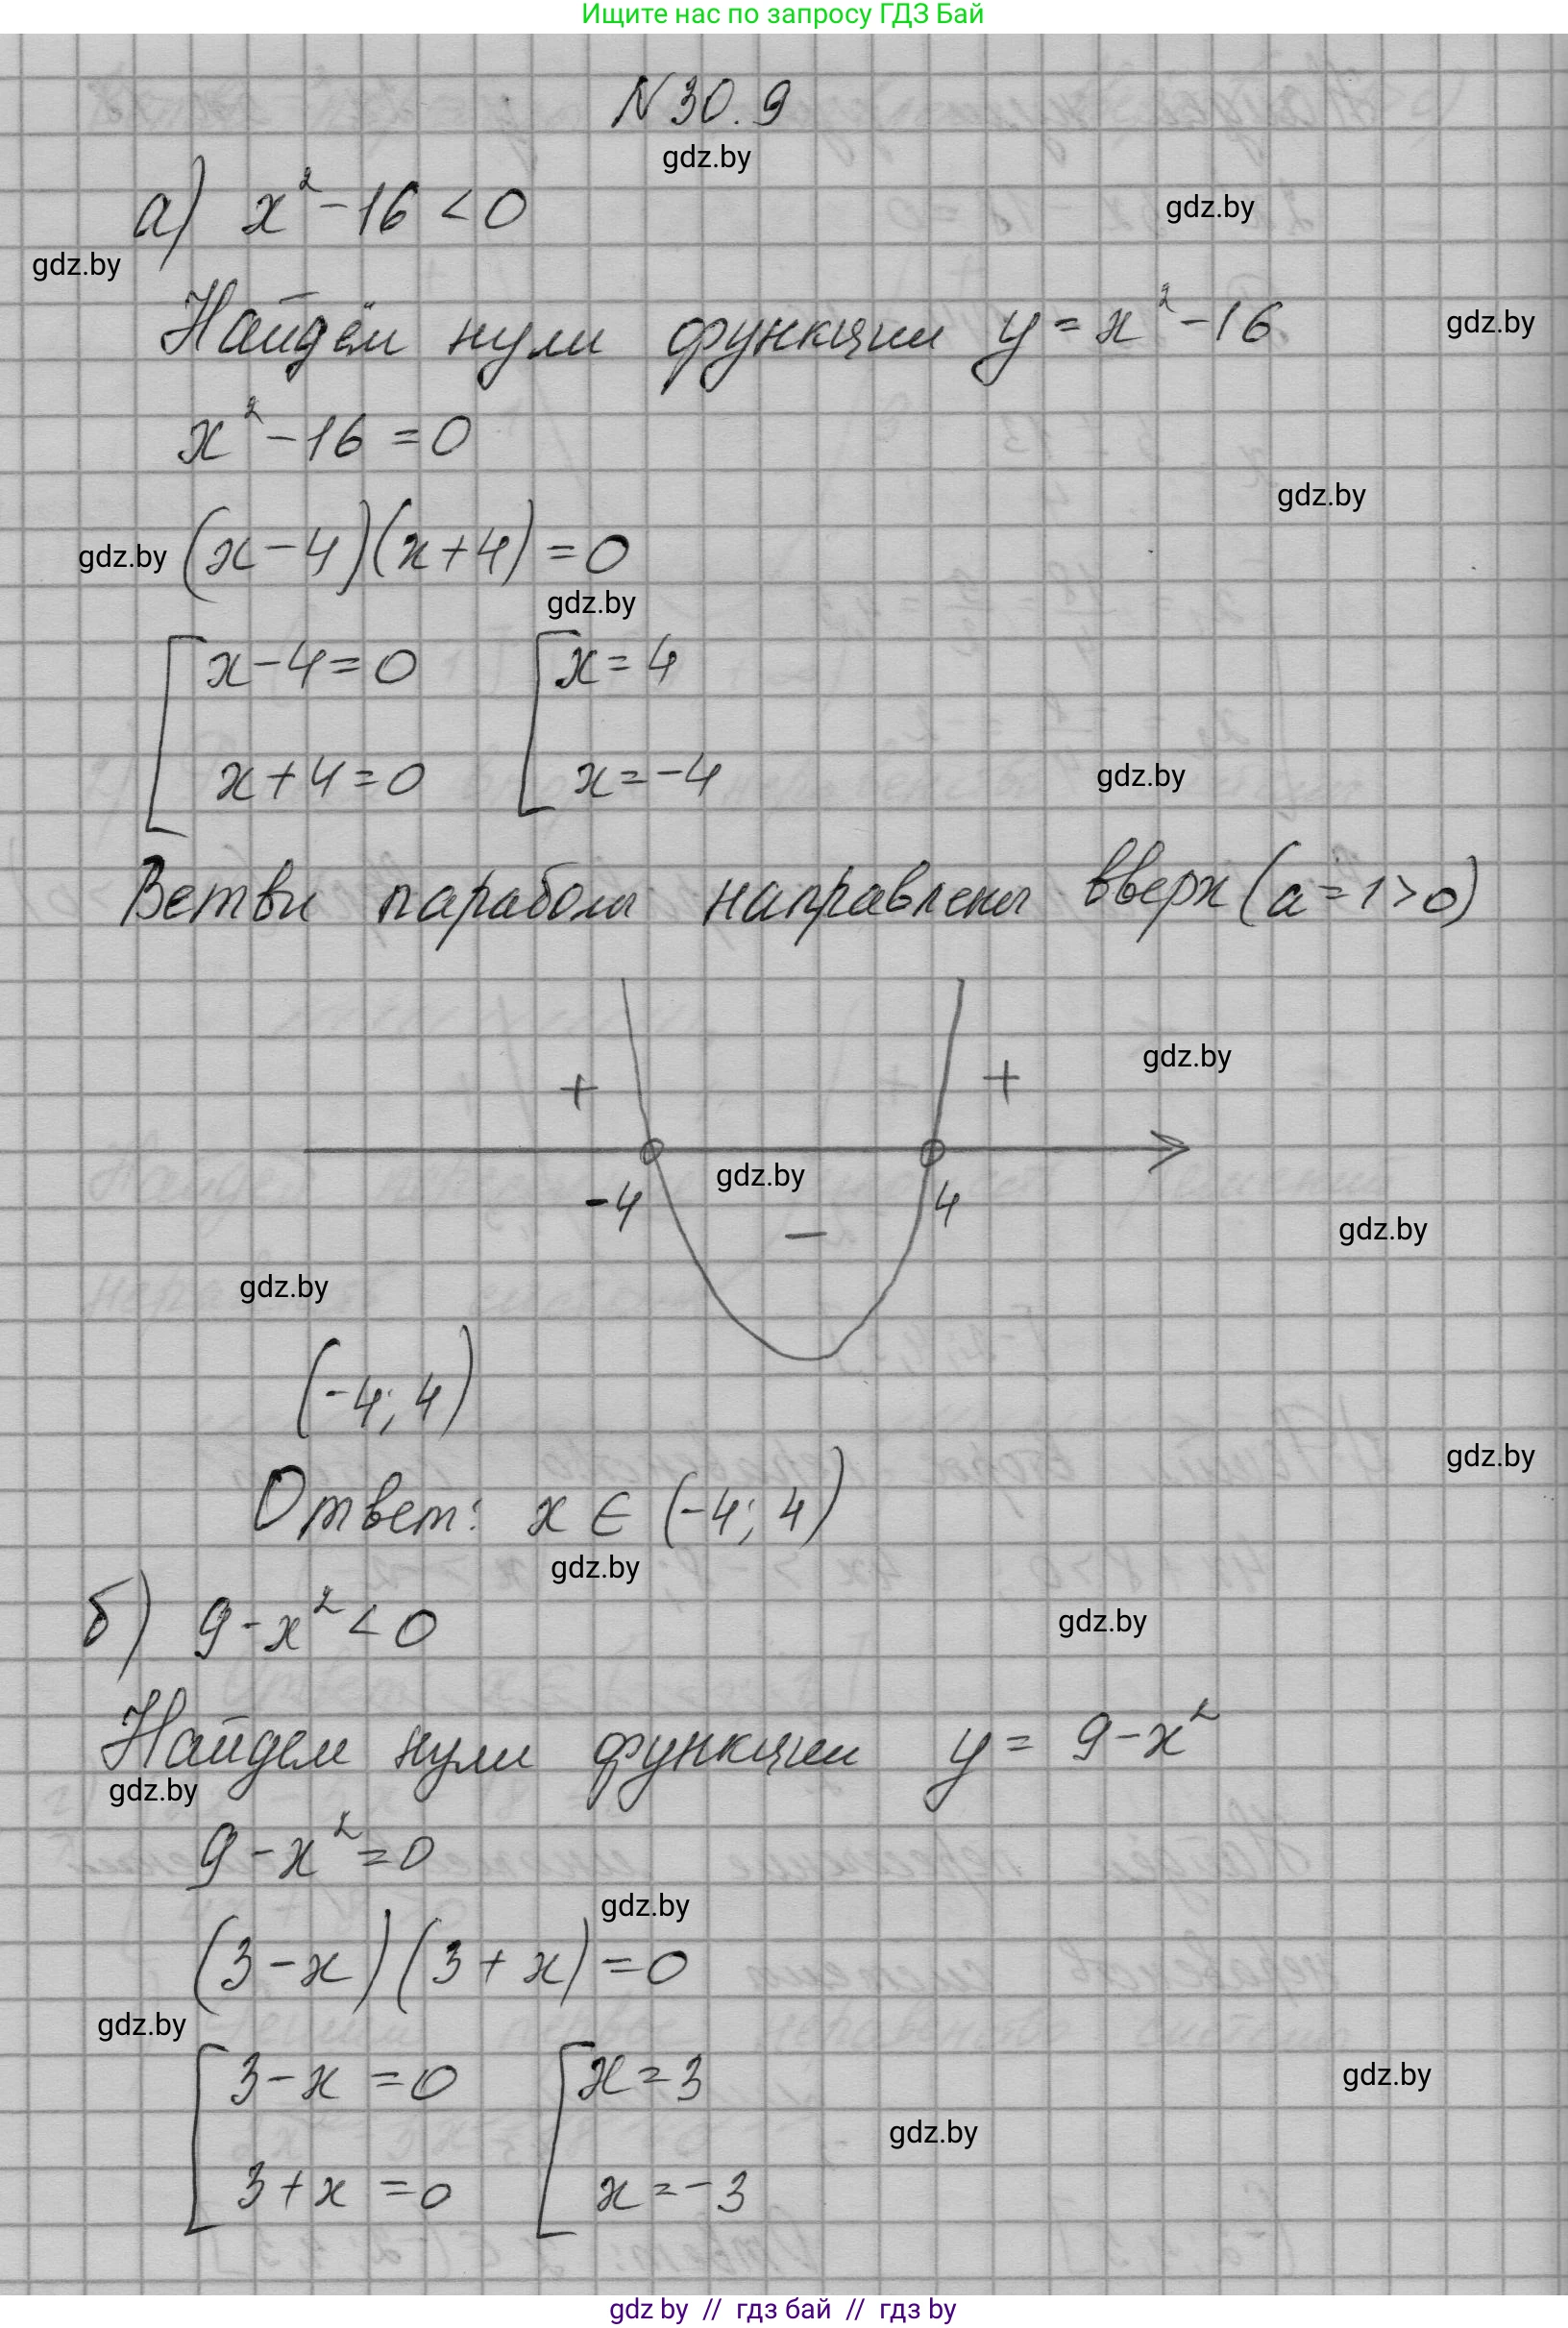 Ищите нас по запросу ГДЗ Бай
N 30. 9
gdz.by
а) x²-16 < 0
gdz.by
gdz.by
Найдём нули функции y = x²-16
gdz.by
x²-16 = 0
gdz.by
(x-4)(x+4) = 0
gdz.by
gdz.by
x-4=0 x=4
x+4=0 x=-4
gdz.by
Ветви параболы направлены вверх (a=1>0)
+ +
gdz.by
gdz.by
-4 4
−
gdz.by
gdz.by
(-4; 4)
gdz.by
Ответ: x ∈ (-4; 4)
gdz.by
б) 9-x² < 0
gdz.by
Найдем нули функции y = 9-x²
gdz.by
9-x²=0
gdz.by
(3-x)(3+x)=0
gdz.by
3-x=0 x=3
gdz.by
gdz.by
3+x=0 x=-3
gdz by // гдз бай // гдз by